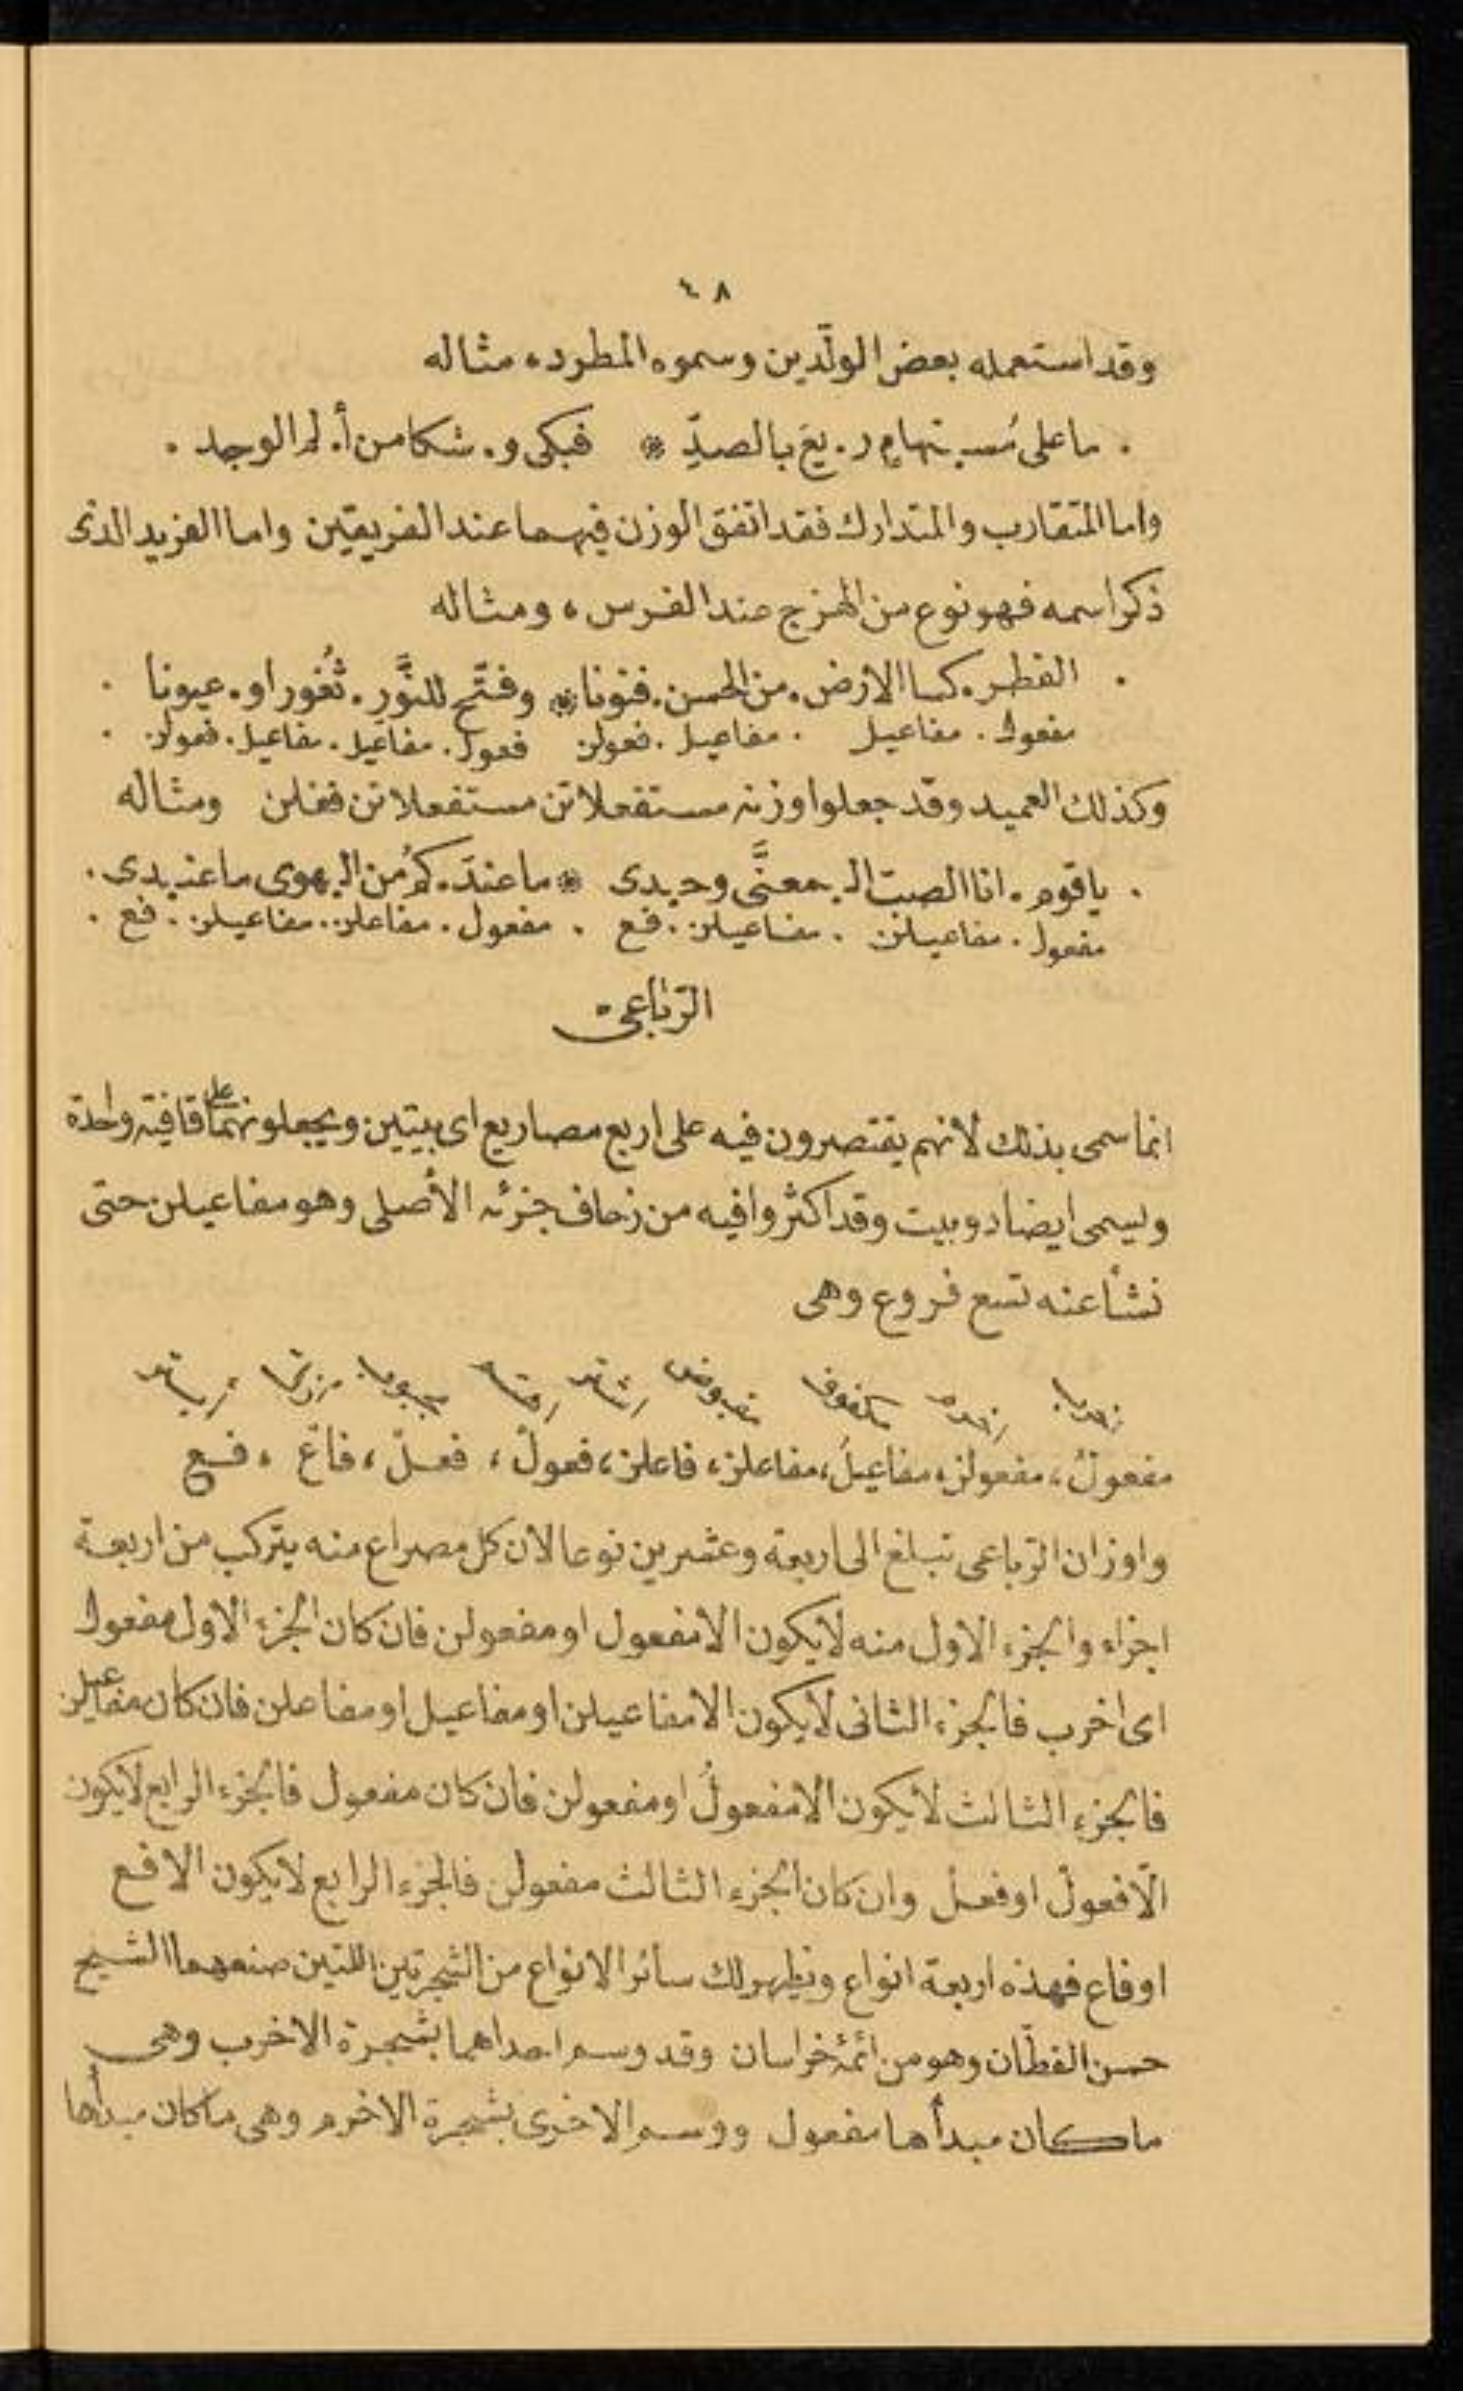 ٤٨
وقد استعمله بعض الولّدين وسموه المطرد ، مثاله
. ما على مُسـ . تهامٍ ر . يعَ بالصدِّ * فبكى و . شكا من أ . لم الوجد .
واما المتقارب والمتدارك فقد اتفق الوزن فيهما عند الفريقين واما الفريد الذى
ذكر اسمه فهو نوع من الهزج عند الفرس ، ومثاله
. القطر . كسا الارض . من الحسن . فنونا * وفتَّح للنَّور . ثُغورا و . عيونا .
مفعول . مفاعيل . مفاعيل . فعولن فعول . مفاعيل . مفاعيل . فعولن .
وكذلك العميد وقد جعلوا وزنه مستفعلاتن مستفعلاتن فعلن ومثاله
. ياقوم . انا الصبّ الـ . معنَّى وحيدى * ما عندَ . كمُ من الـ . هوى ما عنـ . يدى .
مفعول . مفاعيلن . مفاعيلن . فع . مفعول . مفاعلن . مفاعيلن . فع .
الرّباعى
انما سمى بذلك لانهم يقتصرون فيه على اربع مصاريع اى بيتين ويجعلونهما على قافية واحدة
ويسمى ايضا دوبيت وقد اكثروا فيه من زحاف جزئه الأصلى وهو مفاعيلن حتى
نشأ عنه تسع فروع وهى
مكفوف مقبوض
مفعولُ ، مفعولن ، مفاعيلُ ، مفاعلن ، فاعلن ، فعولْ ، فعلْ ، فاعْ ، فـع
واوزان الرّباعى تبلغ الى اربعة وعشرين نوعا لان كل مصراع منه يتركب من اربعة
اجزاء والجزء الاول منه لايكون الا مفعول او مفعولن فان كان الجزء الاول مفعول
اى اخرب فالجزء الثانى لايكون الا مفاعيلن او مفاعيل او مفاعلن فان كان مفاعيلن
فالجزء الثالث لايكون الا مفعولُ او مفعولن فان كان مفعول فالجزء الرابع لايكون
الّا فعولْ او فعلْ وان كان الجزء الثالث مفعولن فالجزء الرابع لايكون الا فع
او فاع فهذه اربعة انواع ويظهر لك سائر الانواع من الشجرتين اللتين صنعهما الشيخ
حسن القطّان وهو من ائمة خراسان وقد وسم احداهما بشجرة الاخرب وهى
ما كان مبدأها مفعول ووسم الاخرى بشجرة الاخرم وهى ما كان مبدأها